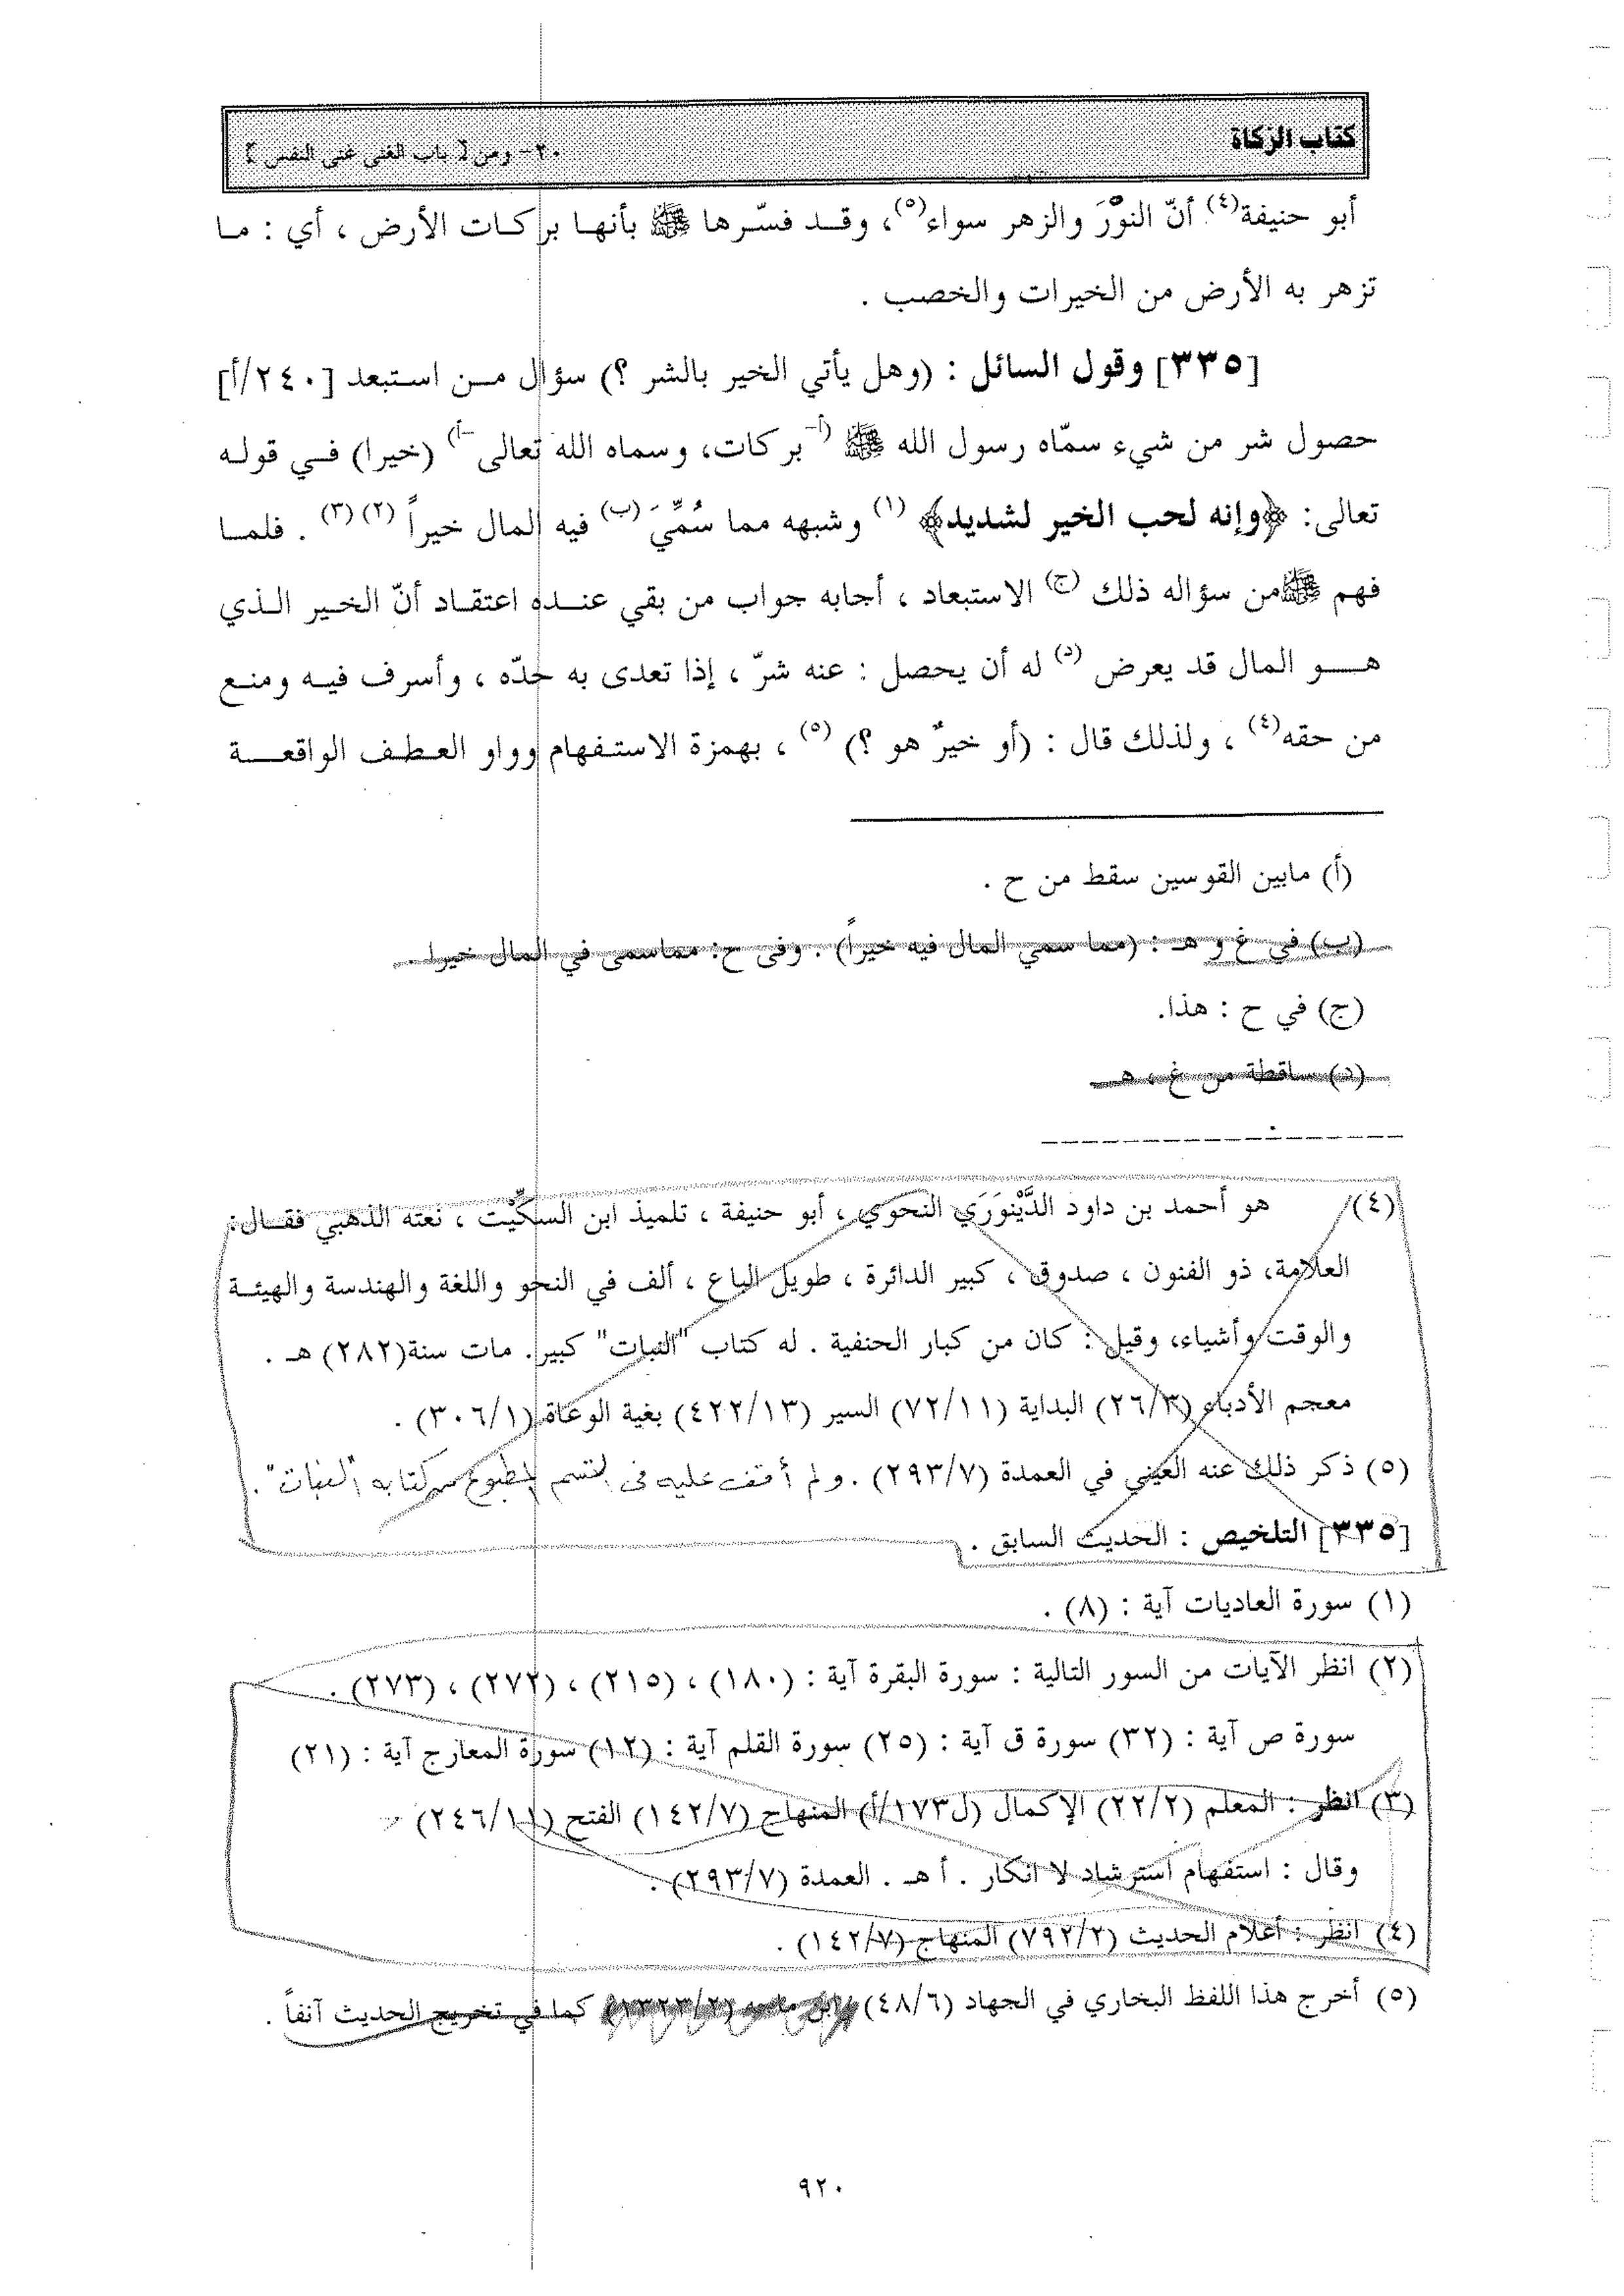 كتاب الزكاة
٢٠- ومن [ باب الغنى غنى النفس ]
أبو حنيفة(٤) أنّ النوْرَ والزهر سواء(٥)، وقد فسّرها ﷺ بأنها بركات الأرض ، أي : ما
تزهر به الأرض من الخيرات والخصب .
[٣٣٥] وقول السائل : (وهل يأتي الخير بالشر ؟) سؤال من استبعد [٢٤٠/أ]
حصول شر من شيء سمّاه رسول الله ﷺ (أ- بركات، وسماه الله تعالى -أ) (خيرا) في قوله
تعالى: ﴿وإنه لحب الخير لشديد﴾ (١) وشبهه مما سُمِّيَ (ب) فيه المال خيراً (٢) (٣) . فلما
فهم ﷺ من سؤاله ذلك (ج) الاستبعاد ، أجابه جواب من بقي عنده اعتقاد أنّ الخير الذي
هو المال قد يعرض (د) له أن يحصل : عنه شرّ ، إذا تعدى به حدّه ، وأسرف فيه ومنع
من حقه(٤) ، ولذلك قال : (أو خيرٌ هو ؟) (٥) ، بهمزة الاستفهام وواو العطف الواقعة
(أ) مابين القوسين سقط من ح .
(ب) في غ و هـ : (مما سمي المال فيه خيراً) . وفى ح: مماسمى في المال خيرا .
(ج) في ح : هذا.
(د) ساقطة من غ ، هـ
(٤) هو أحمد بن داود الدَّيْنوَرَي النحوي ، أبو حنيفة ، تلميذ ابن السكِّيْت ، نعته الذهبي فقال:
العلامة، ذو الفنون ، صدوق ، كبير الدائرة ، طويل الباع ، ألف في النحو واللغة والهندسة والهيئة
والوقت وأشياء، وقيل : كان من كبار الحنفية . له كتاب "النبات" كبير. مات سنة(٢٨٢) هـ .
معجم الأدباء (٢٦/٣) البداية (٧٢/١١) السير (٤٢٢/١٣) بغية الوعاة (٣٠٦/١) .
(٥) ذكر ذلك عنه العيني في العمدة (٢٩٣/٧) . ولم أقف عليه في القسم المطبوع من كتابه "النبات" .
[٣٣٥] التلخيص : الحديث السابق .
(١) سورة العاديات آية : (٨) .
(٢) انظر الآيات من السور التالية : سورة البقرة آية : (١٨٠) ، (٢١٥) ، (٢٧٢) ، (٢٧٣) .
سورة ص آية : (٣٢) سورة ق آية : (٢٥) سورة القلم آية : (١٢) سورة المعارج آية : (٢١)
(٣) انظر : المعلم (٢٢/٢) الإكمال (ل١٧٣/أ) المنهاج (١٤٢/٧) الفتح (٢٤٦/١١)
وقال : استفهام استرشاد لا انكار . أ هـ . العمدة (٢٩٣/٧) .
(٤) انظر : أعلام الحديث (٧٩٢/٢) المنهاج (١٤٢/٧) .
(٥) أخرج هذا اللفظ البخاري في الجهاد (٤٨/٦) وابن ماجه (١٣٢٣/٢) كما في تخريج الحديث آنفاً .
٩٢٠